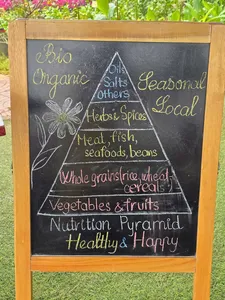 Bio
Organic
Seasonal
Local
Oils
Salts
Others
Herbs & Spices
Meat, fish,
seafoods, beans
Whole grains(rice, wheat-
cereals)
Vegetables & fruits
Nutrition Pyramid
Healthy & Happy